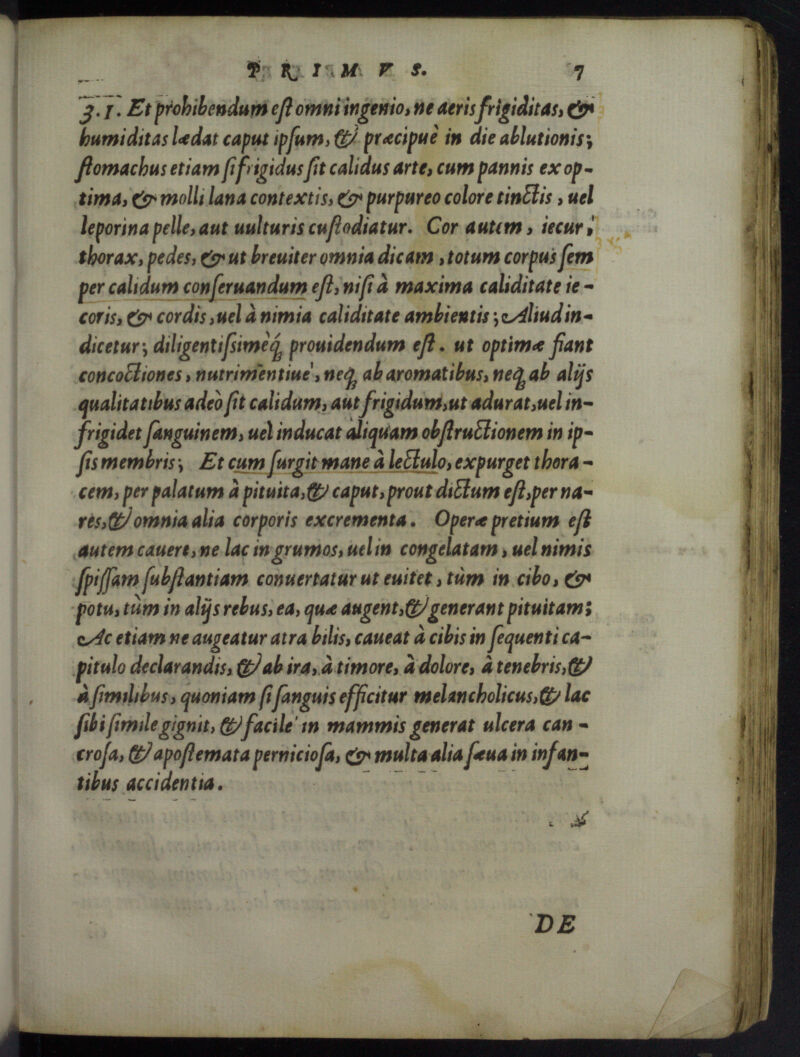 PRIMVS. 7
3. 1. Et prohibendum eſt omni ingenio, ne aeris frigiditas, &
humiditas lædat caput ipſum, & præcipuè in die ablutionis;
ſtomachus etiam ſi frigidus ſit calidus arte, cum pannis ex op-
tima, & molli lana contextis, & purpureo colore tinctis, uel
leporina pelle, aut uulturis cuſtodiatur. Cor autem, iecur,
thorax, pedes, & ut breuiter omnia dicam, totum corpus ſem
per calidum conſeruandum eſt, niſi à maxima caliditate ie-
coris, & cordis, uel à nimia caliditate ambientis; Aliud in-
dicetur; diligentiſsimeq́; prouidendum eſt. ut optimæ fiant
concoctiones, nutrimentiue, neq; ab aromatibus, neq; ab alijs
qualitatibus adeò ſit calidum, aut frigidum, ut adurat, uel in-
frigidet ſanguinem, uel inducat aliquam obſtructionem in ip-
ſis membris; Et cum ſurgit mane à lectulo, expurget thora-
cem, per palatum à pituita, & caput, prout dictum eſt, per na-
res, & omnia alia corporis excrementa. Operæ pretium eſt
autem cauere, ne lac in grumos, uel in congelatam, uel nimis
ſpiſſam ſubſtantiam conuertatur ut euitet, tùm in cibo, &
potu, tùm in alijs rebus, ea, quæ augent, & generant pituitam;
Ac etiam ne augeatur atra bilis, caueat à cibis in ſequenti ca-
pitulo declarandis, & ab ira, à timore, à dolore, à tenebris, &
à ſimilibus, quoniam ſi ſanguis efficitur melancholicus, & lac
ſibi ſimile gignit, & facile in mammis generat ulcera can-
croſa, & apoſtemata pernicioſa, & multa alia ſæua in infan-
tibus accidentia.
DE